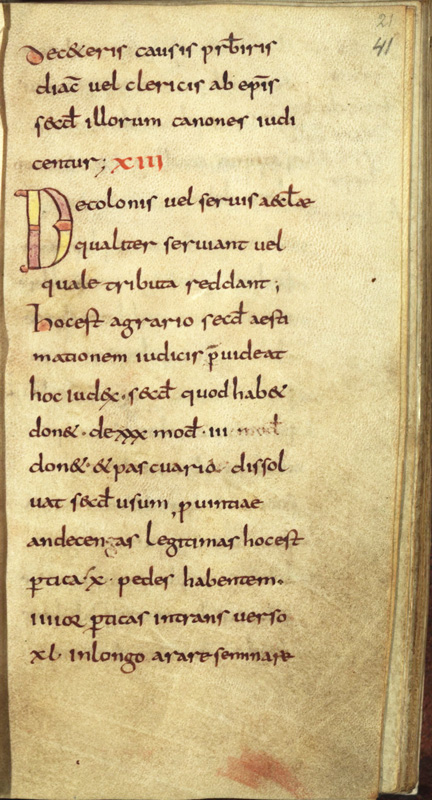 21
41
Deceteris causis prb̄iris
diac̄ vel clericis ab ep̄is
secd̄ illorum canones iudi
centur; XIII
Decolonis vel servis aeccl̄ae
qualiter serviant vel
quale tributa reddant;
hocest agrario secd̄ aesti
mationem iudicis p̄videat
hoc iudex · secd̄ quod habet
donet · dexxx mod̄ · iii mod̄
donet · et pascuaria dissol
vat secd̄ usum, pvintiae
andecengas legitimas hocest
ꝑtica · x · pedes habentem ·
iiiior ꝑticas intrans verso
xl · inlongo arare seminare